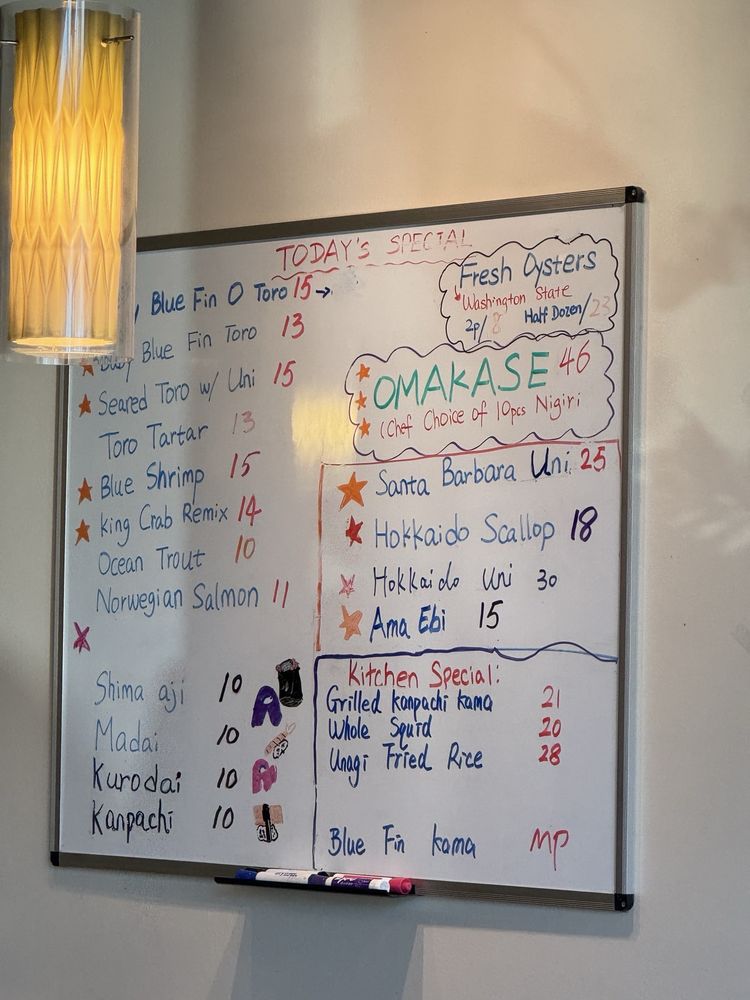 TODAY'S SPECIAL
Blue Fin O Toro 15 →
Baby Blue Fin Toro 13
Seared Toro w/ Uni 15
Toro Tartar 13
Blue Shrimp 15
King Crab Remix 14
Ocean Trout 10
Norwegian Salmon 11
Shima aji 10
Madai 10
Kurodai 10
Kanpachi 10
Fresh Oysters
Washington State
2p/8 Half Dozen/23
OMAKASE 46
(Chef Choice of 10pcs Nigiri
Santa Barbara Uni 25
Hokkaido Scallop 18
Hokkaido Uni 30
Ama Ebi 15
Kitchen Special:
Grilled kanpachi kama 21
Whole Squid 20
Unagi Fried Rice 28
Blue Fin kama MP